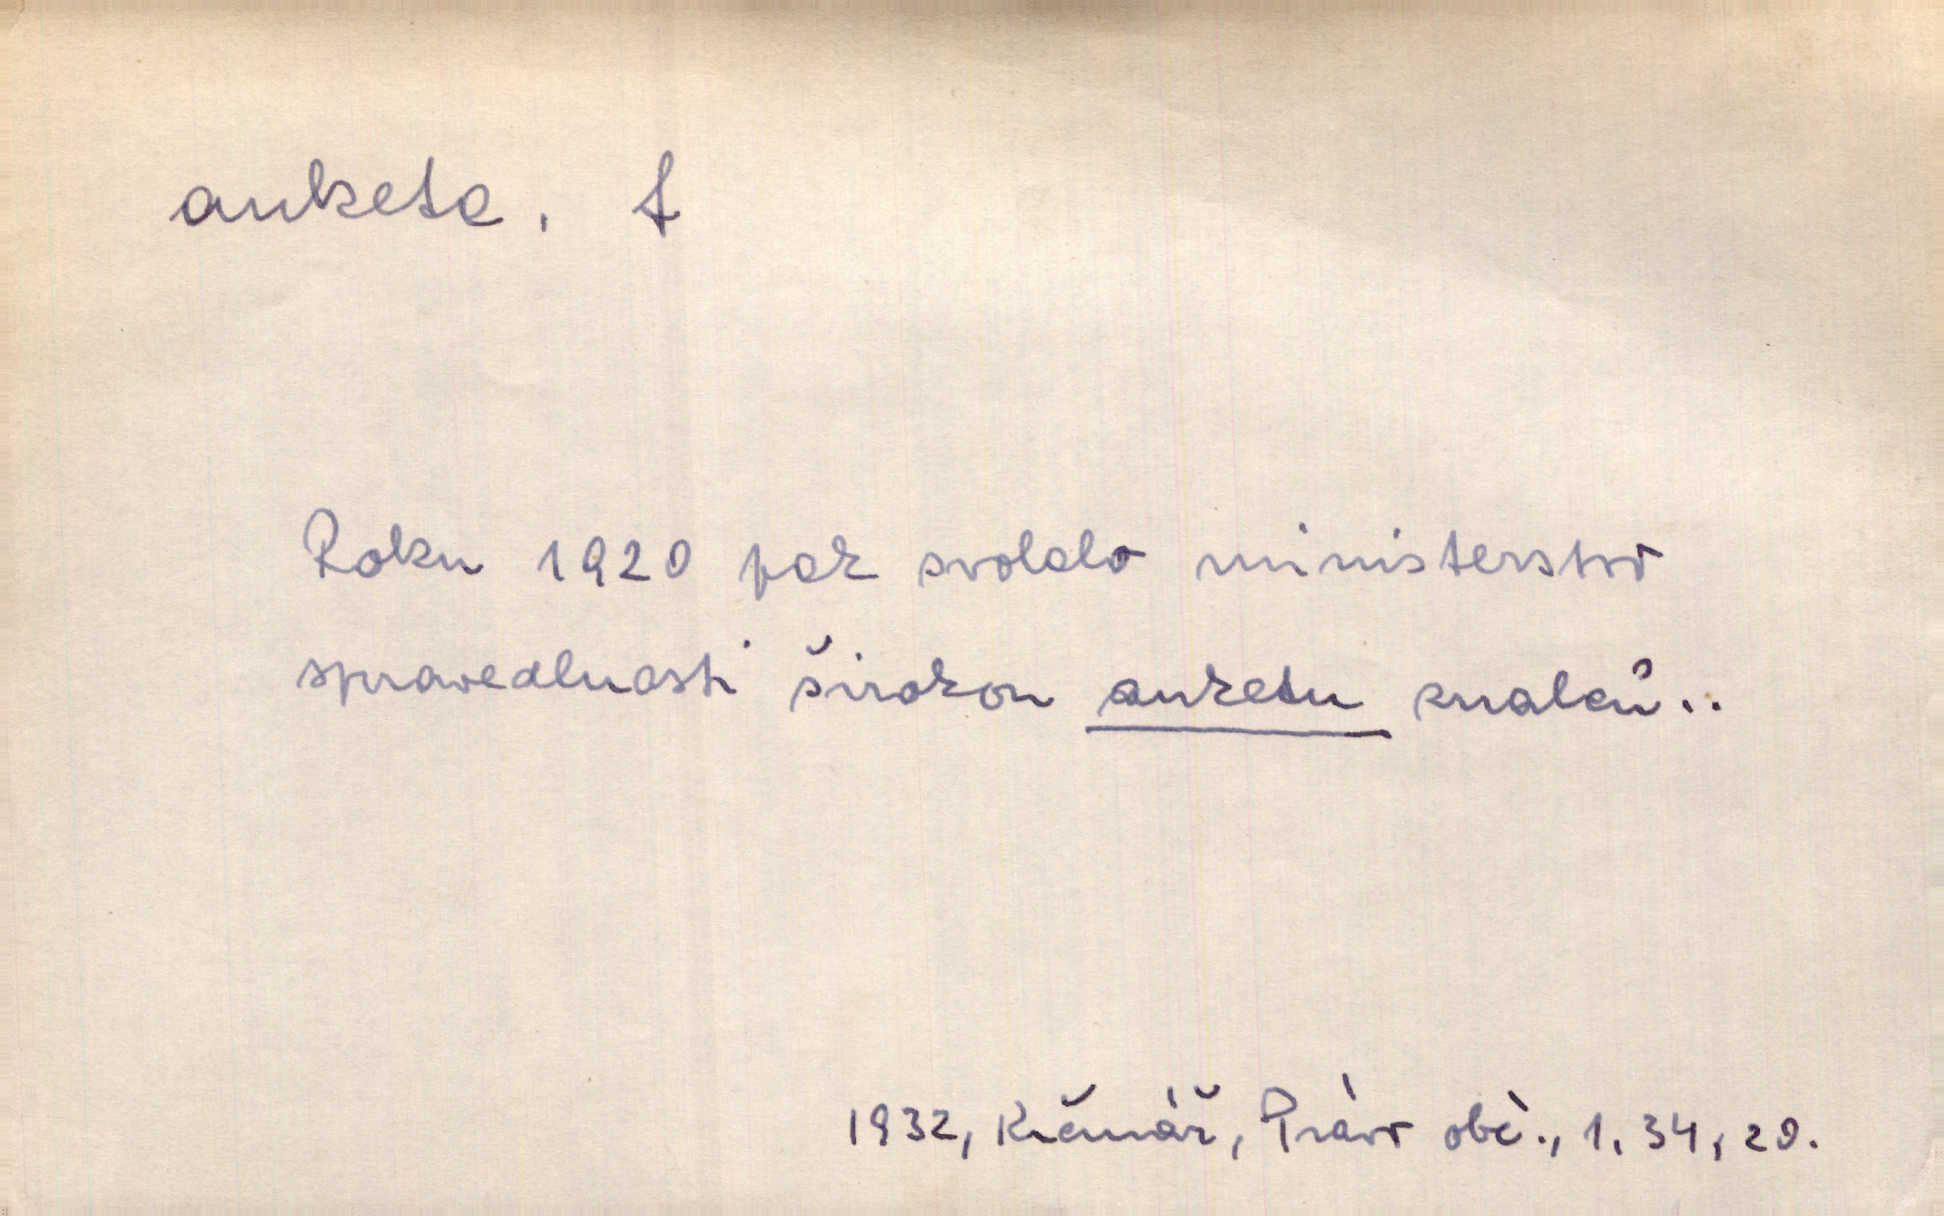 anketa, f
Roku 1920 pak svolalo ministerstvo
spravedlnosti širokou anketu znalců..
1932, Krčmář, Právo obč., 1, 34, 20.